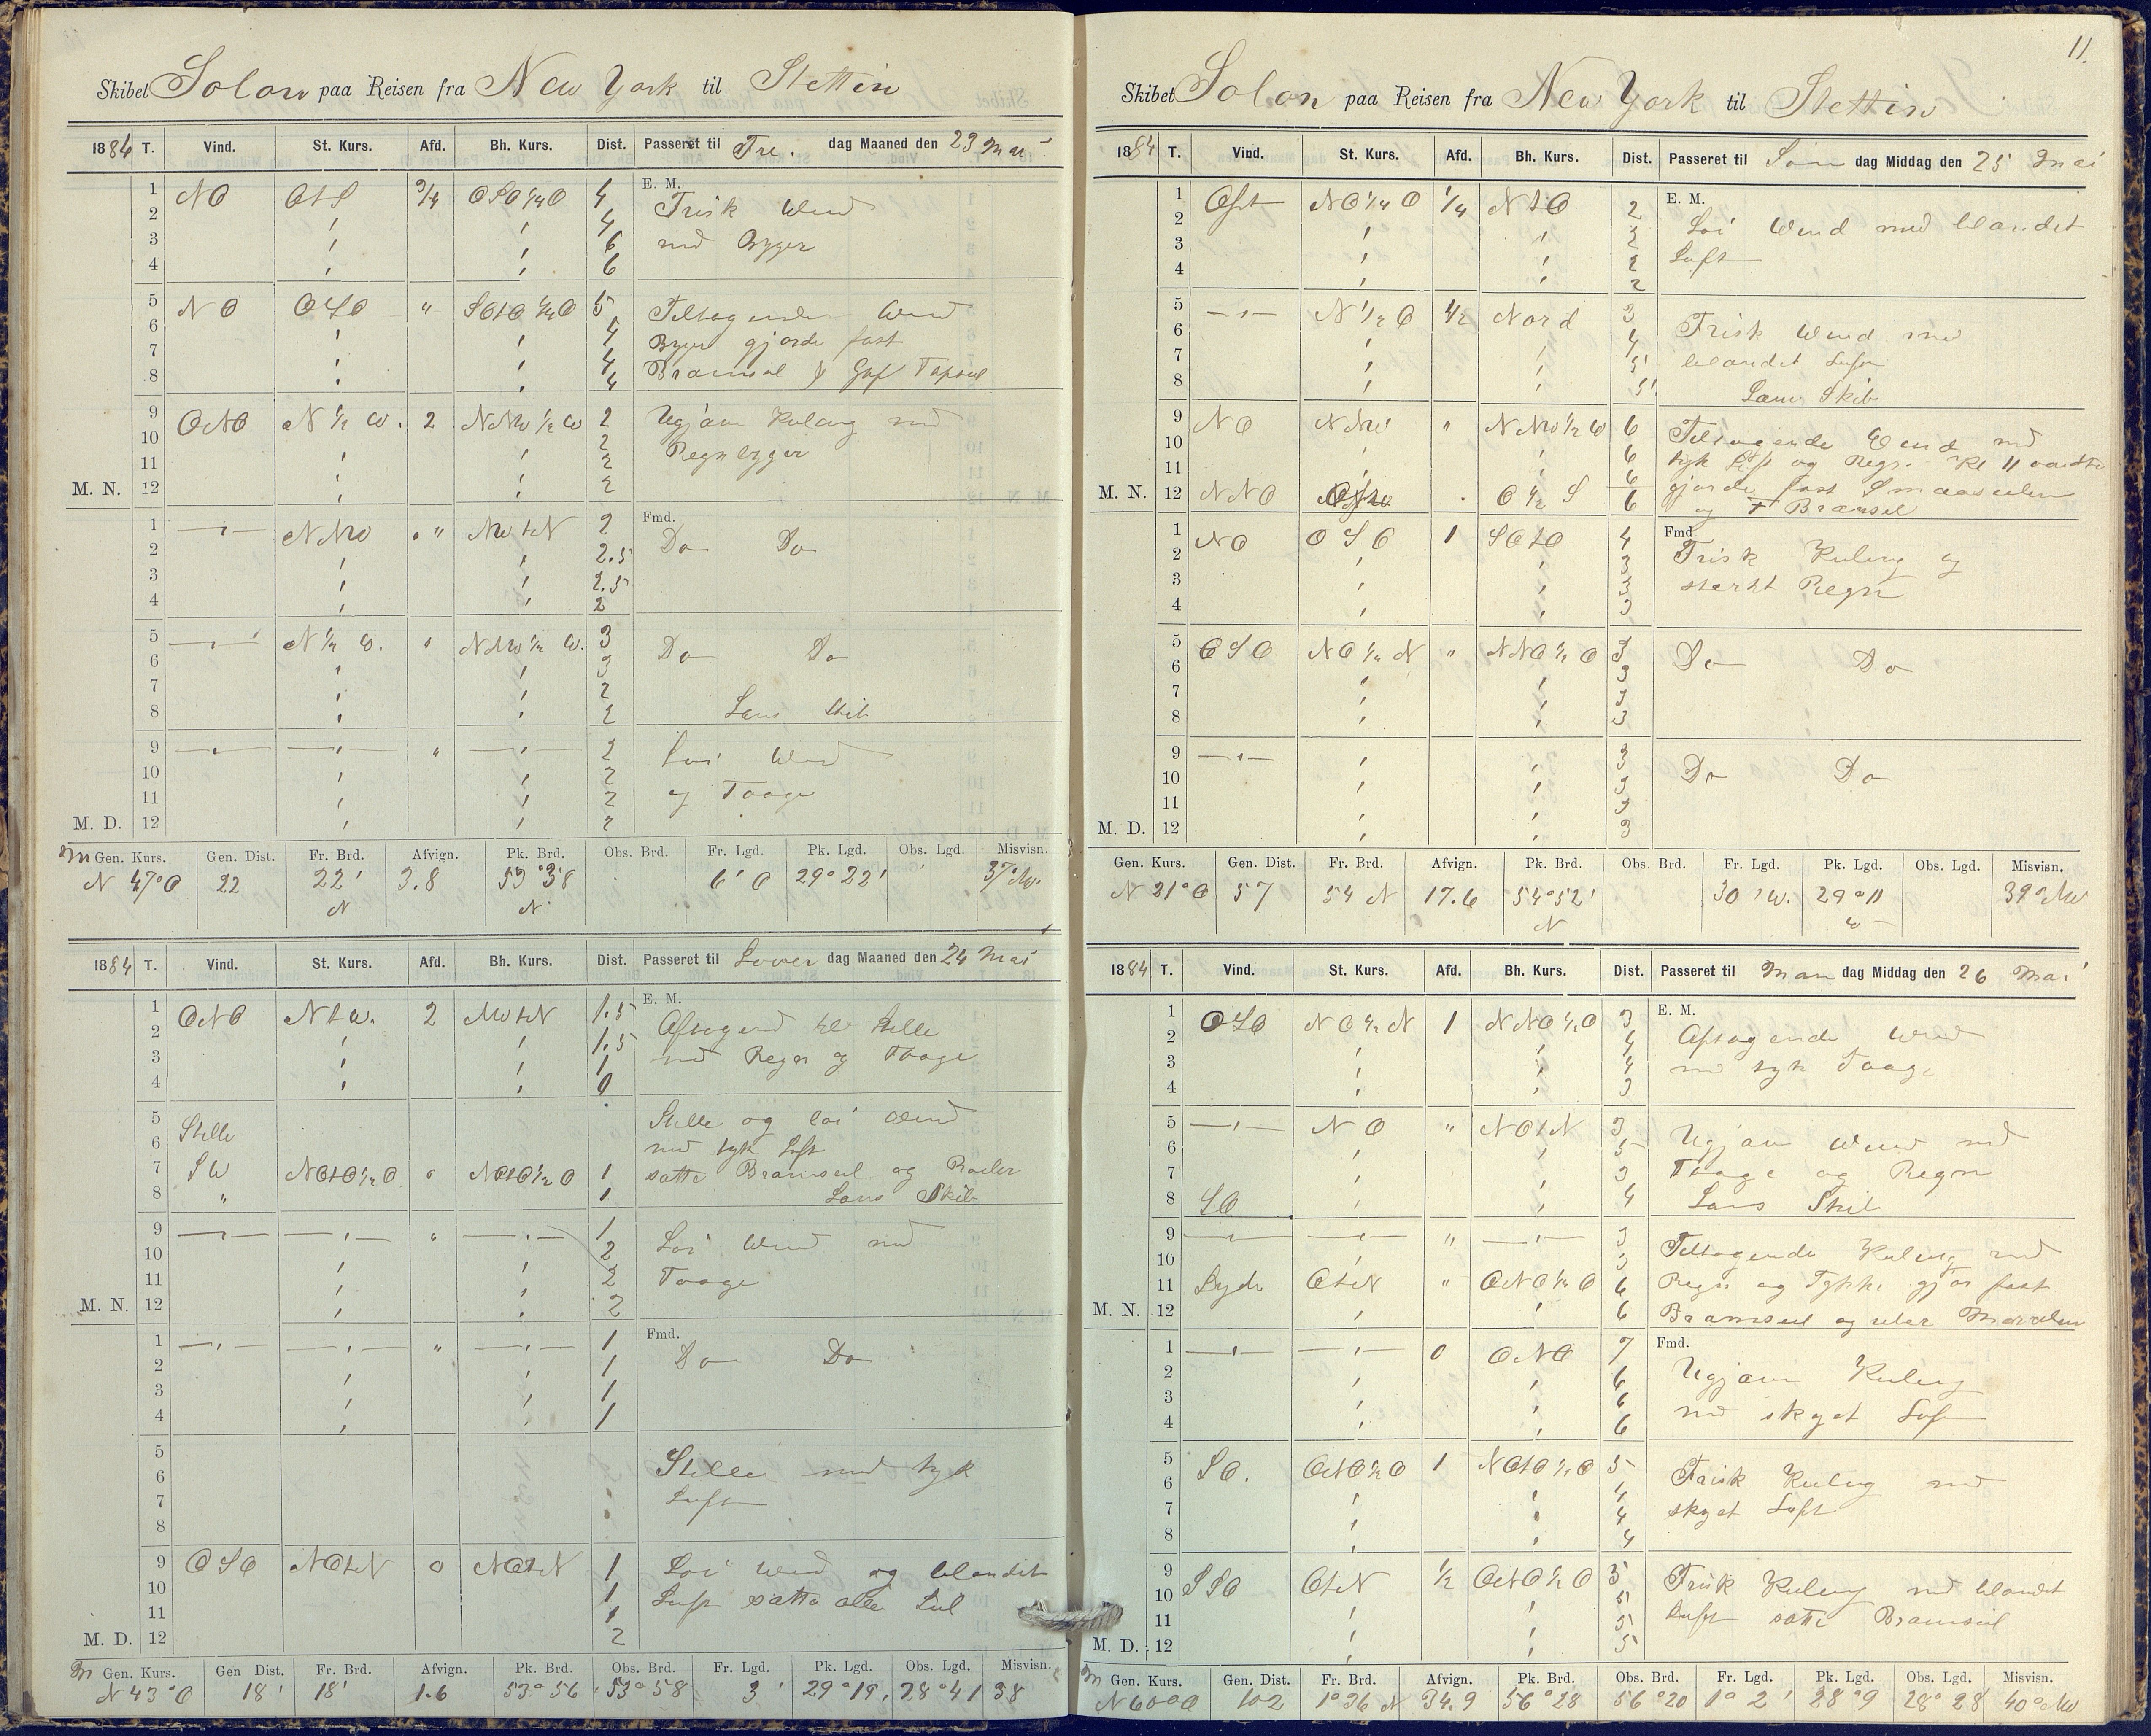 Skibet Solon paa Reisen fra New York til Stettin
1884 T. Vind. St. Kurs. Afd. Bh. Kurs. Dist. Passeret til Fre. dag Maaned den 23 Mai
E. M.
1 NO OtS 3/4 OSO 1/4 O 4 Frisk Wind
2 " " 4
3 " " 6 med Byger
4 " " 6
5 NO OSO " SOtO 1/4 O 5 Tiltagende Wind
6 " " 4 Byger gjorde fast
7 " " 4 Bramseil & Gaf Topseil
8 " " 4
9 ONO N 1/2 W. 2 NNW 1/2 W 2 Ugjævn Kuling med
10 " " 2 Regnbyger
11 " " 2
M. N. 12 " " 2
Fmd.
1 —"— NNW " NWtN 2 Do Do
2 " " 2.5
3 " " 2.5
4 " " 2
5 —"— N 1/2 W. " NNW 1/2 W. 3 Do Do
6 " " 3
7 " " 2
8 " " 2 Læns Skib
9 —"— —"— " —"— 2 Løi Wind
10 " " 2
11 " " 2 og Taage
M. D. 12 " " 2
Gen. Kurs. Gen. Dist. Fr. Brd. Afvign. Pk. Brd. Obs. Brd. Fr. Lgd. Pk. Lgd. Obs. Lgd. Misvisn.
N 47° O 22 22' N 3.8 53° 38 N 6' O 29° 22' 37° W.
1884 T. Vind. St. Kurs. Afd. Bh. Kurs. Dist. Passeret til Løver dag Maaned den 24 Mai
E. M.
1 ONO NtW. 2 NWtN 1.5 Aftagend til Stille
2 " " 1.5
3 " " 1 med Regn og Taage
4 " " 0
5 Stille Stille og løi Wind
6 med tyk Luft
7 SW NOtO 1/2 O " NOtO 1/2 O 1 satte Bramseil og Røiler
8 " 1 Læns Skib
9 —"— —"— " —"— 1 Løi Wind med
10 " " 2
11 " " 2 Taage
M. N. 12 " " 2
Fmd.
1 —"— —"— " —"— 1 Do Do
2 " " 1
3 " " 1
4 " " 1
5
6 Stille med tyk
7 Luft
8
9 OSO NOtN 0 NOtN 1 Løi Wind og blandet
10 1 Luft satte alle Seil
11 1
M. D. 12 2
Gen. Kurs. Gen Dist. Fr. Brd. Afvign. Pk. Brd. Obs. Brd. Fr. Lgd. Pk. Lgd. Obs. Lgd. Misvisn.
N 43° O 18' 18' 1.6 53° 56 53° 58 3' 29° 19, 28° 41 38
11.
Skibet Solon paa Reisen fra New York til Stettin
1884 T. Vind. St. Kurs. Afd. Bh. Kurs. Dist. Passeret til Søn dag Middag den 25 Mai
E. M.
1 Ost NO 1/4 O 1/4 NtO 2 Løi Wind med blandet
2 " " 2
3 " " 2 Luft
4 " " 2
5 —"— N 1/2 O 1/2 Nord 3
6 " " 4 Frisk Wind med
7 " " 5 blandet Luft
8 " " 5 Læns Skib
9 NO NNW " NNW 1/2 W 6 Tiltagende Wind med
10 " " 6 tyk Luft og Regn. Kl 11 vendte
11 " " 6 gjorde fast Smaaseilene
M. N. 12 NNO O 1/2 S 6 og Bramseil
Fmd.
1 NO OSO 1 SOtO 4 Frisk Kuling og
2 " " 3
3 " " 3 stærkt Regn
4 " " 3
5 OSO NO 1/2 N " NNO 1/2 O 3 Do Do
6 " " 3
7 " " 3
8 " " 3
9 —"— " " 3 Do Do
10 " " 3
11 " " 3
M. D. 12 " " 3
Gen. Kurs. Gen. Dist. Fr. Brd. Afvign. Pk. Brd. Obs. Brd. Fr. Lgd. Pk. Lgd. Obs. Lgd. Misvisn.
N 21° O 57 54 N 17.6 54° 52' N 30' W. 29° 11 W 39° NW
1884 T. Vind. St. Kurs. Afd. Bh. Kurs. Dist. Passeret til Man dag Middag den 26 Mai
E. M.
1 OSO NO 1/2 N 1 NNO 1/2 O 3 Aftagende Wind
2 " " 4
3 " " 4 med tyk Taage
4 " " 3
5 —"— NO " NOtN 3 Ugjævn Wind med
6 " " 5
7 " " 3 Taage og Regn
8 SO " " 4 Læns Skib
9 —"— —"— " —"— 3 Tiltagende Kuling med
10 " 3
11 Syd OtN " ONO 1/2 O 6 Regn og Tykke gjor fast
M. N. 12 " " 6 Bramseil og
Fmd.
1 —"— —"— 0 ONO 7 Ugjævn Kuling
2 " " 6
3 " " 6 med skyet Luft
4 " " 6
5 SO. ONO 1/2 O 1 NOtO 1/2 O 5 Frisk Kuling med
6 " " 4
7 " " 4 skyet Luft
8 " " 4
9 SSO OtN 1/2 ONO 1/2 O 5 Frisk Kuling med blandet
10 " " 5
11 " " 5 Luft satte Bramseil
M. D. 12 " " 5
Gen. Kurs. Gen. Dist. Fr. Brd. Afvign. Pk. Brd. Obs. Brd. Fr. Lgd. Pk. Lgd. Obs. Lgd. Misvisn.
N 60° O 102 1° 36 N 34.9 56° 28 56° 20 1° 2' 28° 9 28° 28' 40° NW